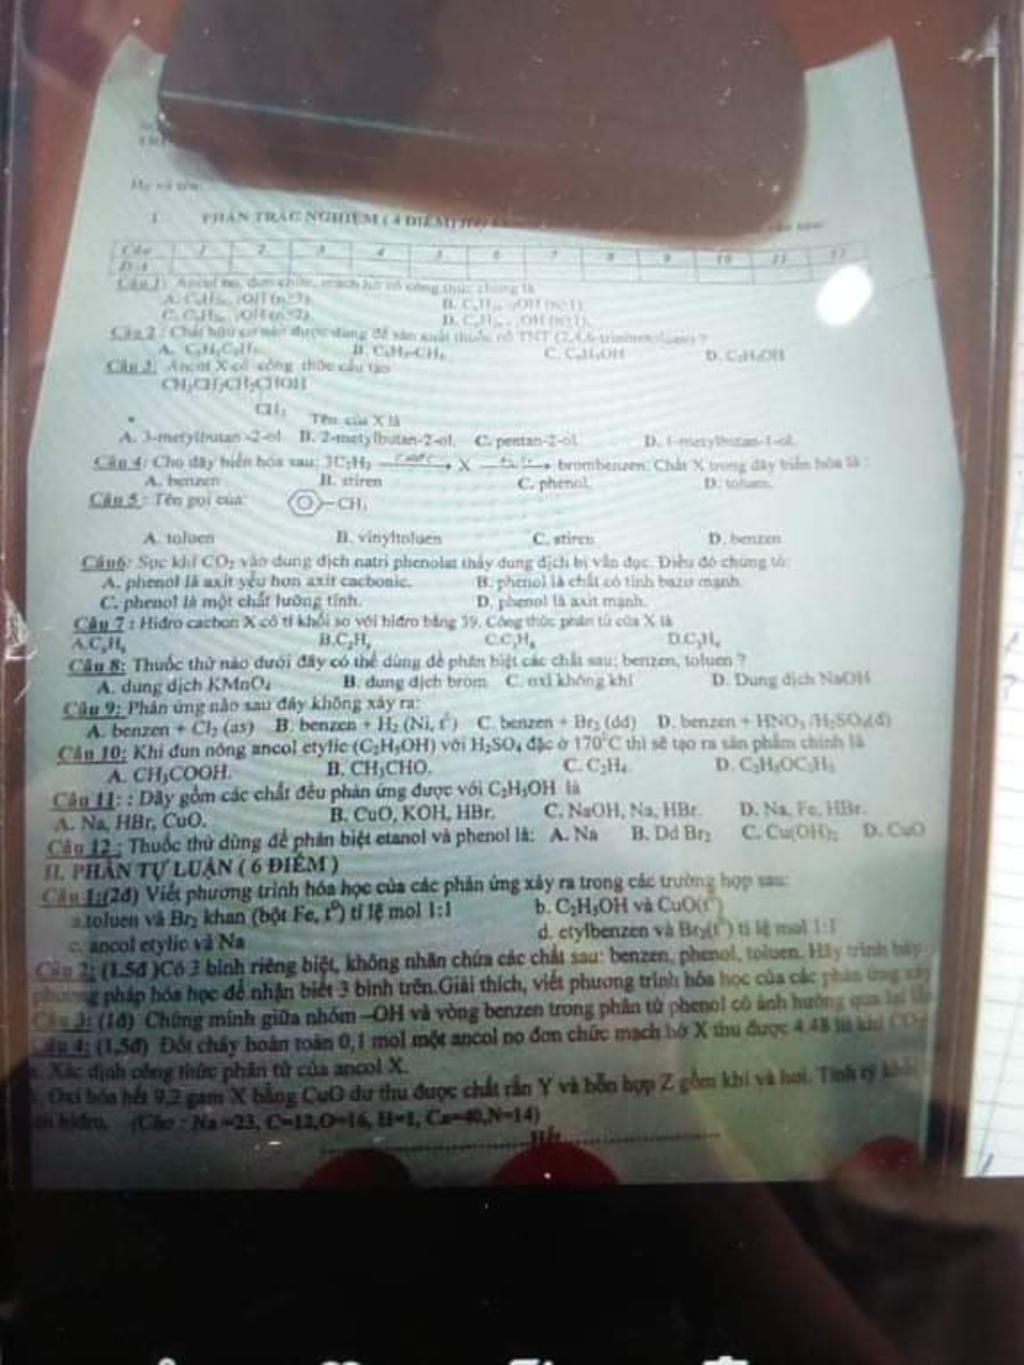 Họ và tên
I PHẦN TRẮC NGHIỆM ( 4 ĐIỂM)
Câu 1 2 3 4 5 6 7 8 9 10 11 12
Đ.A
Câu 1: Ancol no, đơn chức, mạch hở có công thức chung là
Câu 2 : Chất hữu cơ nào được dùng để sản xuất thuốc nổ TNT (2,4,6-trinitrotoluen) ?
B. C₆H₅-CH₃ C. C₆H₅OH D. C₂H₅OH
Câu 3: Ancol X có công thức cấu tạo
CH₃CH₂CH₂CHOH
CH₃
Tên của X là
A. 3-metylbutan -2-ol B. 2-metylbutan-2-ol. C. pentan-2-ol D. 1-metylbutan-1-ol.
Câu 4: Cho dãy biến hóa sau: 3C₂H₂ X brombenzen. Chất X trong dãy biến hóa là :
A. benzen B. stiren C. phenol. D. toluen.
Câu 5 : Tên gọi của: CH₃
A. toluen B. vinyltoluen C. stiren D. benzen
Câu6: Sục khí CO₂ vào dung dịch natri phenolat thấy dung dịch bị vẩn đục. Điều đó chứng tỏ:
A. phenol là axit yếu hơn axit cacbonic. B. phenol là chất có tính bazơ mạnh.
C. phenol là một chất lưỡng tính. D. phenol là axit mạnh.
Câu 7 : Hiđro cacbon X có tỉ khối so với hiđro bằng 39. Công thức phân tử của X là
Câu 8: Thuốc thử nào dưới đây có thể dùng để phân biệt các chất sau: benzen, toluen ?
A. dung dịch KMnO₄ B. dung dịch brom C. oxi không khí D. Dung dịch NaOH
Câu 9: Phản ứng nào sau đây không xảy ra:
A. benzen + Cl₂ (as) B. benzen + H₂ (Ni, t⁰) C. benzen + Br₂ (dd) D. benzen + HNO₃ /H₂SO₄(đ)
Câu 10: Khi đun nóng ancol etylic (C₂H₅OH) với H₂SO₄ đặc ở 170⁰C thì sẽ tạo ra sản phẩm chính là
A. CH₃COOH. B. CH₃CHO. C. C₂H₄. D. C₂H₅OC₂H₅
Câu 11: : Dãy gồm các chất đều phản ứng được với C₂H₅OH là
A. Na, HBr, CuO. B. CuO, KOH, HBr. C. NaOH, Na, HBr. D. Na, Fe, HBr.
Câu 12 : Thuốc thử dùng để phân biệt etanol và phenol là: A. Na B. Dd Br₂ C. Cu(OH)₂ D. CuO
II. PHẦN TỰ LUẬN ( 6 ĐIỂM )
Câu 1:(2đ) Viết phương trình hóa học của các phản ứng xảy ra trong các trường hợp sau:
a.toluen và Br₂ khan (bột Fe, t⁰) tỉ lệ mol 1:1 b. C₂H₅OH và CuO(t⁰)
c. ancol etylic và Na d. etylbenzen và Br₂(t⁰) tỉ lệ mol 1:1
Câu 2: (1,5đ )Có 3 bình riêng biệt, không nhãn chứa các chất sau: benzen, phenol, toluen. Hãy trình bày
phương pháp hóa học để nhận biết 3 bình trên.Giải thích, viết phương trình hóa học của các phản ứng xảy
Câu 3: (1đ) Chứng minh giữa nhóm –OH và vòng benzen trong phân tử phenol có ảnh hưởng qua lại
Câu 4: (1,5đ) Đốt cháy hoàn toàn 0,1 mol một ancol no đơn chức mạch hở X thu được 4,48 lít khí CO₂
a. Xác định công thức phân tử của ancol X.
b. Oxi hóa hết 9,2 gam X bằng CuO dư thu được chất rắn Y và hỗn hợp Z gồm khí và hơi. Tính tỷ khối
hiđro. (Cho : Na =23, C=12,O=16, H=1, Ca=40,N=14)
Hết